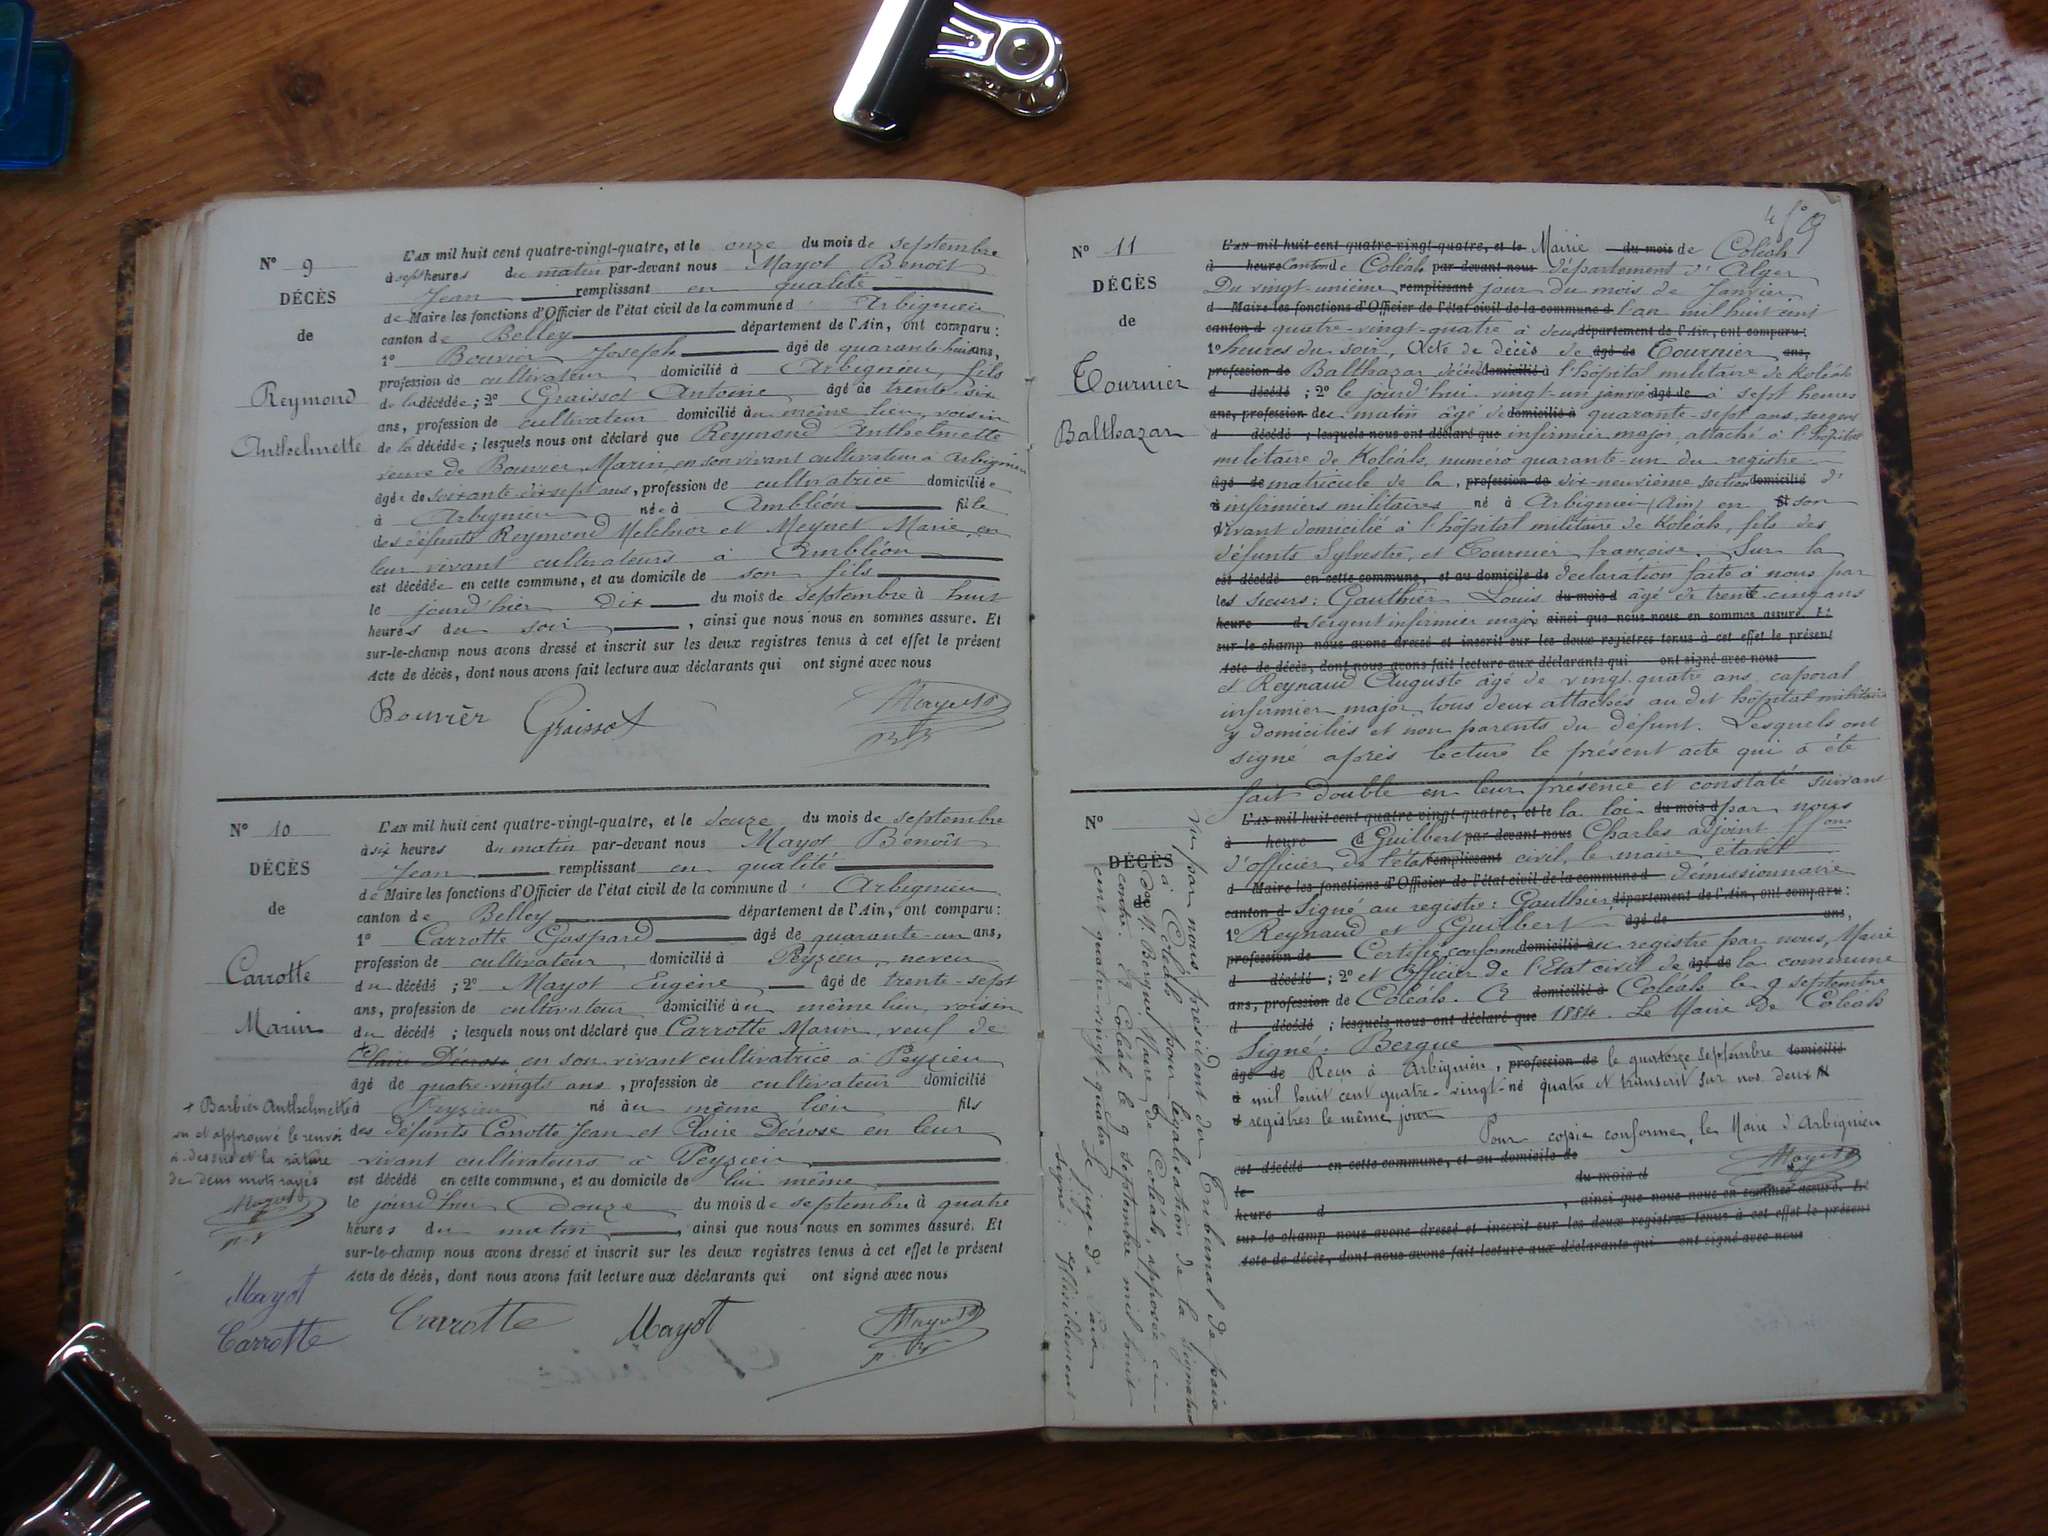 N° 9
DÉCÈS
de
Reymond
Anthelmette
L'AN mil huit cent quatre-vingt-quatre, et le onze du mois de septembre
à sept heures du matin par-devant nous Mayot Benoît
Jean remplissant en qualité
de Maire les fonctions d'Officier de l'état civil de la commune d'Arbignieu
canton de Belley département de l'Ain, ont comparu :
1° Bouvier Joseph âgé de quarante-huit ans,
profession de cultivateur domicilié à Arbignieu, fils
de la décédée ; 2° Graissot Antoine âgé de trente-six
ans, profession de cultivateur domicilié au même lieu, voisin
de la décédée ; lesquels nous ont déclaré que Reymond Anthelmette
veuve de Bouvier Marin, en son vivant cultivateur à Arbignieu
âgée de soixante-dix-sept ans, profession de cultivatrice domiciliée
à Arbignieu née à Ambléon fille
des défunts Reymond Melchior et Meynet Marie, en
leur vivant cultivateurs à Ambléon
est décédée en cette commune, et au domicile de son fils
le jourd'hier dix du mois de septembre à huit
heures du soir, ainsi que nous nous en sommes assuré. Et
sur-le-champ nous avons dressé et inscrit sur les deux registres tenus à cet effet le présent
Acte de décès, dont nous avons fait lecture aux déclarants qui ont signé avec nous
Bouvier Graissot Mayot
N° 10
DÉCÈS
de
Carrotte
Marin
L'AN mil huit cent quatre-vingt-quatre, et le douze du mois de septembre
à six heures du matin par-devant nous Mayot Benoît
Jean remplissant en qualité
de Maire les fonctions d'Officier de l'état civil de la commune d'Arbignieu
canton de Belley département de l'Ain, ont comparu :
1° Carrotte Gaspard âgé de quarante-un ans,
profession de cultivateur domicilié à Peyzieu, neveu
du décédé ; 2° Mayot Eugène âgé de trente-sept
ans, profession de cultivateur domicilié au même lieu, voisin
du décédé ; lesquels nous ont déclaré que Carrotte Marin, veuf de
+ Claire Décrose en son vivant cultivatrice à Peyzieu
âgé de quatre-vingts ans, profession de cultivateur domicilié
à Peyzieu né au même lieu fils
des défunts Carrotte Jean et Claire Décrose en leur
vivant cultivateurs à Peyzieu
est décédé en cette commune, et au domicile de lui même
le jourd'hui douze du mois de septembre à quatre
heures du matin, ainsi que nous nous en sommes assuré. Et
sur-le-champ nous avons dressé et inscrit sur les deux registres tenus à cet effet le présent
Acte de décès, dont nous avons fait lecture aux déclarants qui ont signé avec nous
+ Barbier Anthelmette
vu et approuvé le renvoi
ci-dessus et la rature
de deux mots rayés
Mayot
Mayot
Carrotte
Carrotte Mayot Mayot
N° 11
DÉCÈS
de
Tournier
Balthazar
L'AN mil huit cent quatre-vingt-quatre, et le Mairie du mois de Coléah
à heure Canton de Coléah par-devant nous département d'Alger
Du vingt-unième remplissant jour du mois de Janvier
d Maire les fonctions d'Officier de l'état civil de la commune d l'an mil huit cent
canton d quatre-vingt-quatre à deux département de l'Ain, ont comparu :
1° heures du soir, Acte de décès de âgé de Tournier ans,
profession de Balthazar décédé domicilié à l'hôpital militaire de Koléah
d décédé ; 2° le jourd'hui vingt-un janvier âgé de à sept heures
ans, profession de du matin âgé de domicilié à quarante-sept ans, sergent
d décédé ; lesquels nous ont déclaré que infirmier major, attaché à l'hôpital
militaire de Koléah, numéro quarante-un du registre
âgé de matricule de la profession de dix-neuvième section domicilié d'
à infirmiers militaires né à Arbignieu (Ain) en fil son
d vivant domicilié à l'hôpital militaire de Koléah, fils des
défunts Sylvestre, et Tournier françoise. Sur la
est décédé en cette commune, et au domicile de déclaration faite à nous par
les sieurs : Gauthier Louis du mois d âgé de trente-cinq ans
heure d sergent infirmier major ainsi que nous nous en sommes assuré. Et
sur-le-champ nous avons dressé et inscrit sur les deux registres tenus à cet effet le présent
Acte de décès, dont nous avons fait lecture aux déclarants qui ont signé avec nous
et Reynaud Auguste âgé de vingt-quatre ans, caporal
infirmier major, tous deux attachés au dit hôpital militaire
y domiciliés et non parents du défunt. Lesquels ont
signé après lecture le présent acte qui a été
fait double en leur présence et constaté suivant
L'AN mil huit cent quatre-vingt-quatre, et le la loi du mois d par nous
à heure d Guilbert par-devant nous Charles adjoint ff ons
d'officier de l'état remplissant civil, le maire étant
d Maire les fonctions d'Officier de l'état civil de la commune d démissionnaire
canton d Signé au registre : Gauthier département de l'Ain, ont comparu :
1° Reynaud et Guilbert âgé de ans,
profession de Certifié conforme domicilié à au registre par nous, Maire
d décédé ; 2° et Officier de l'Etat civil de âgé de la commune
ans, profession de Coléah. A domicilié à Coléah le 9 septembre
d décédé ; lesquels nous ont déclaré que 1884. Le Maire de Coléah
Signé : Bergue
âgé de Reçu à Arbignieu, profession de le quatorze septembre domicilié
à mil huit cent quatre-vingt-né quatre et transcrit sur nos deux fil
d registres le même jour
Pour copie conforme, le Maire d'Arbignieu
Mayot
est décédé en cette commune, et au domicile de
le du mois d
heure d, ainsi que nous nous en sommes assuré. Et
sur-le-champ nous avons dressé et inscrit sur les deux registres tenus à cet effet le présent
Acte de décès, dont nous avons fait lecture aux déclarants qui ont signé avec nous
N°
DÉCÈS
de
Vu par nous président du Tribunal de paix
à Coléah pour légalisation de la signature
de M. Bergue Maire de Coléah, apposée ci-
contre. A Coléah le 9 septembre mil huit
cent quatre-vingt-quatre. Le juge de Paix
signé : illisiblement